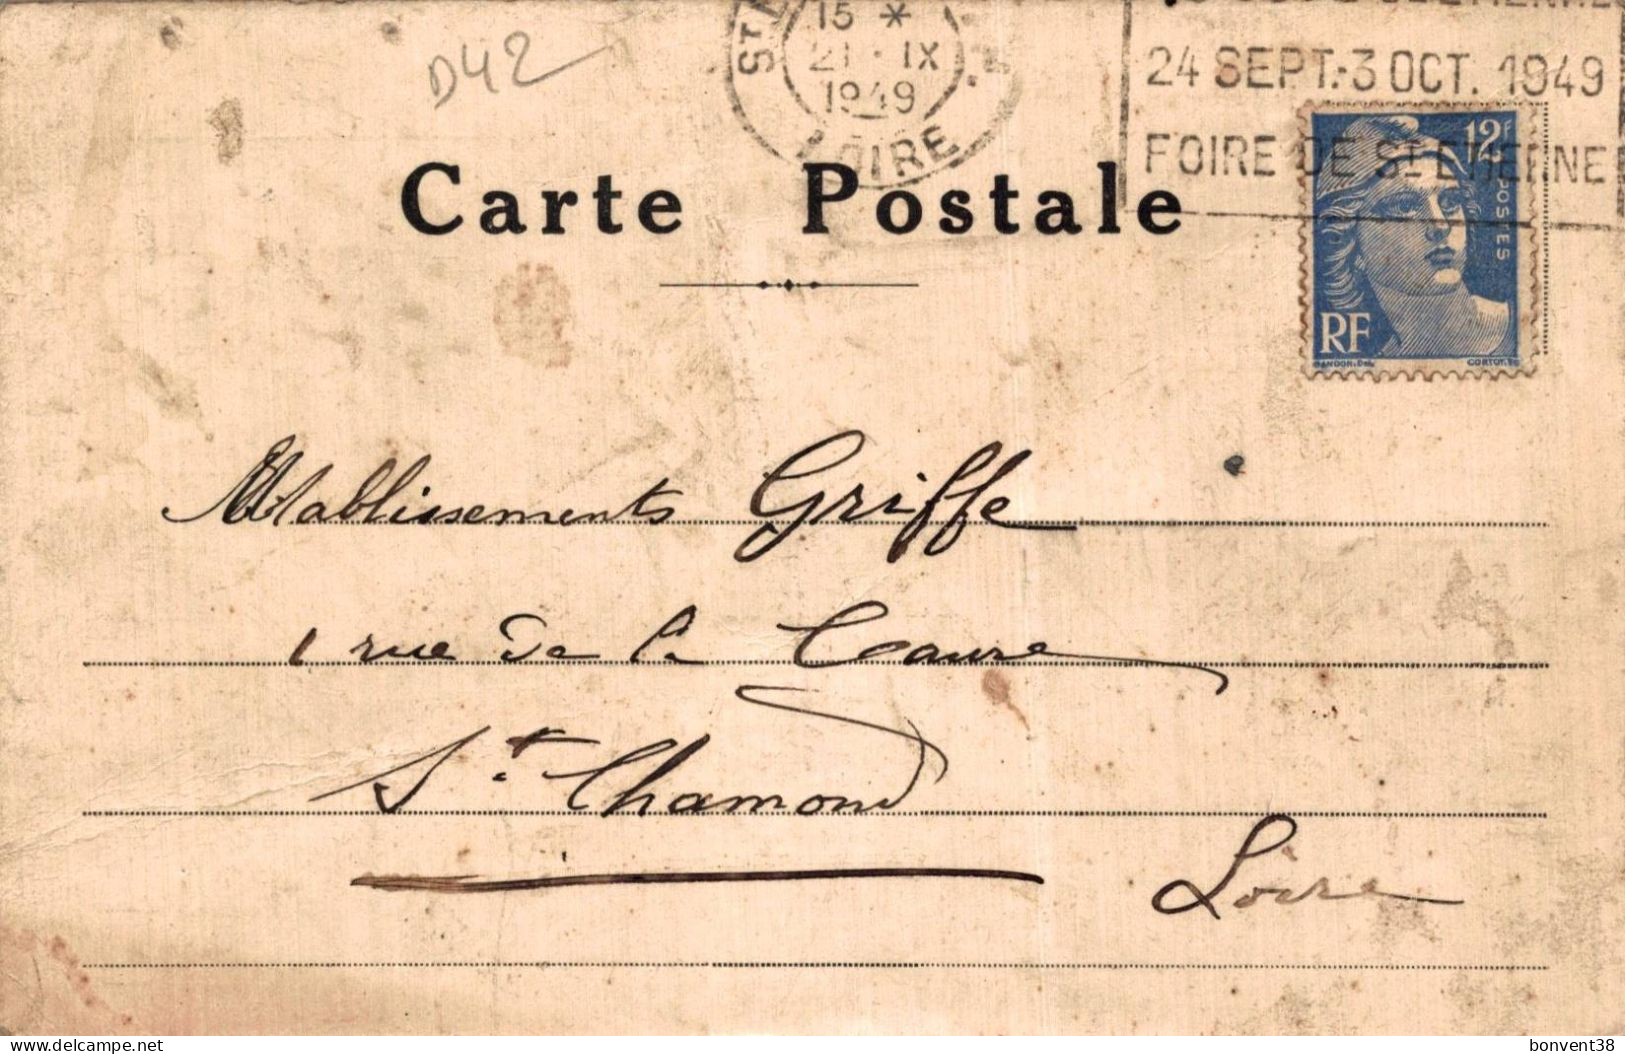 D42
15 *
21 - IX
1949
LOIRE
24 SEPT.-3 OCT. 1949
FOIRE DE ST ETIENNE
Carte Postale
12F
POSTES
RF
GANDON.Del.
CORTOT.Sc
Etablissements Griffe
1 rue de la
St. Chamond
Loire
delcampe.net
bonvent38